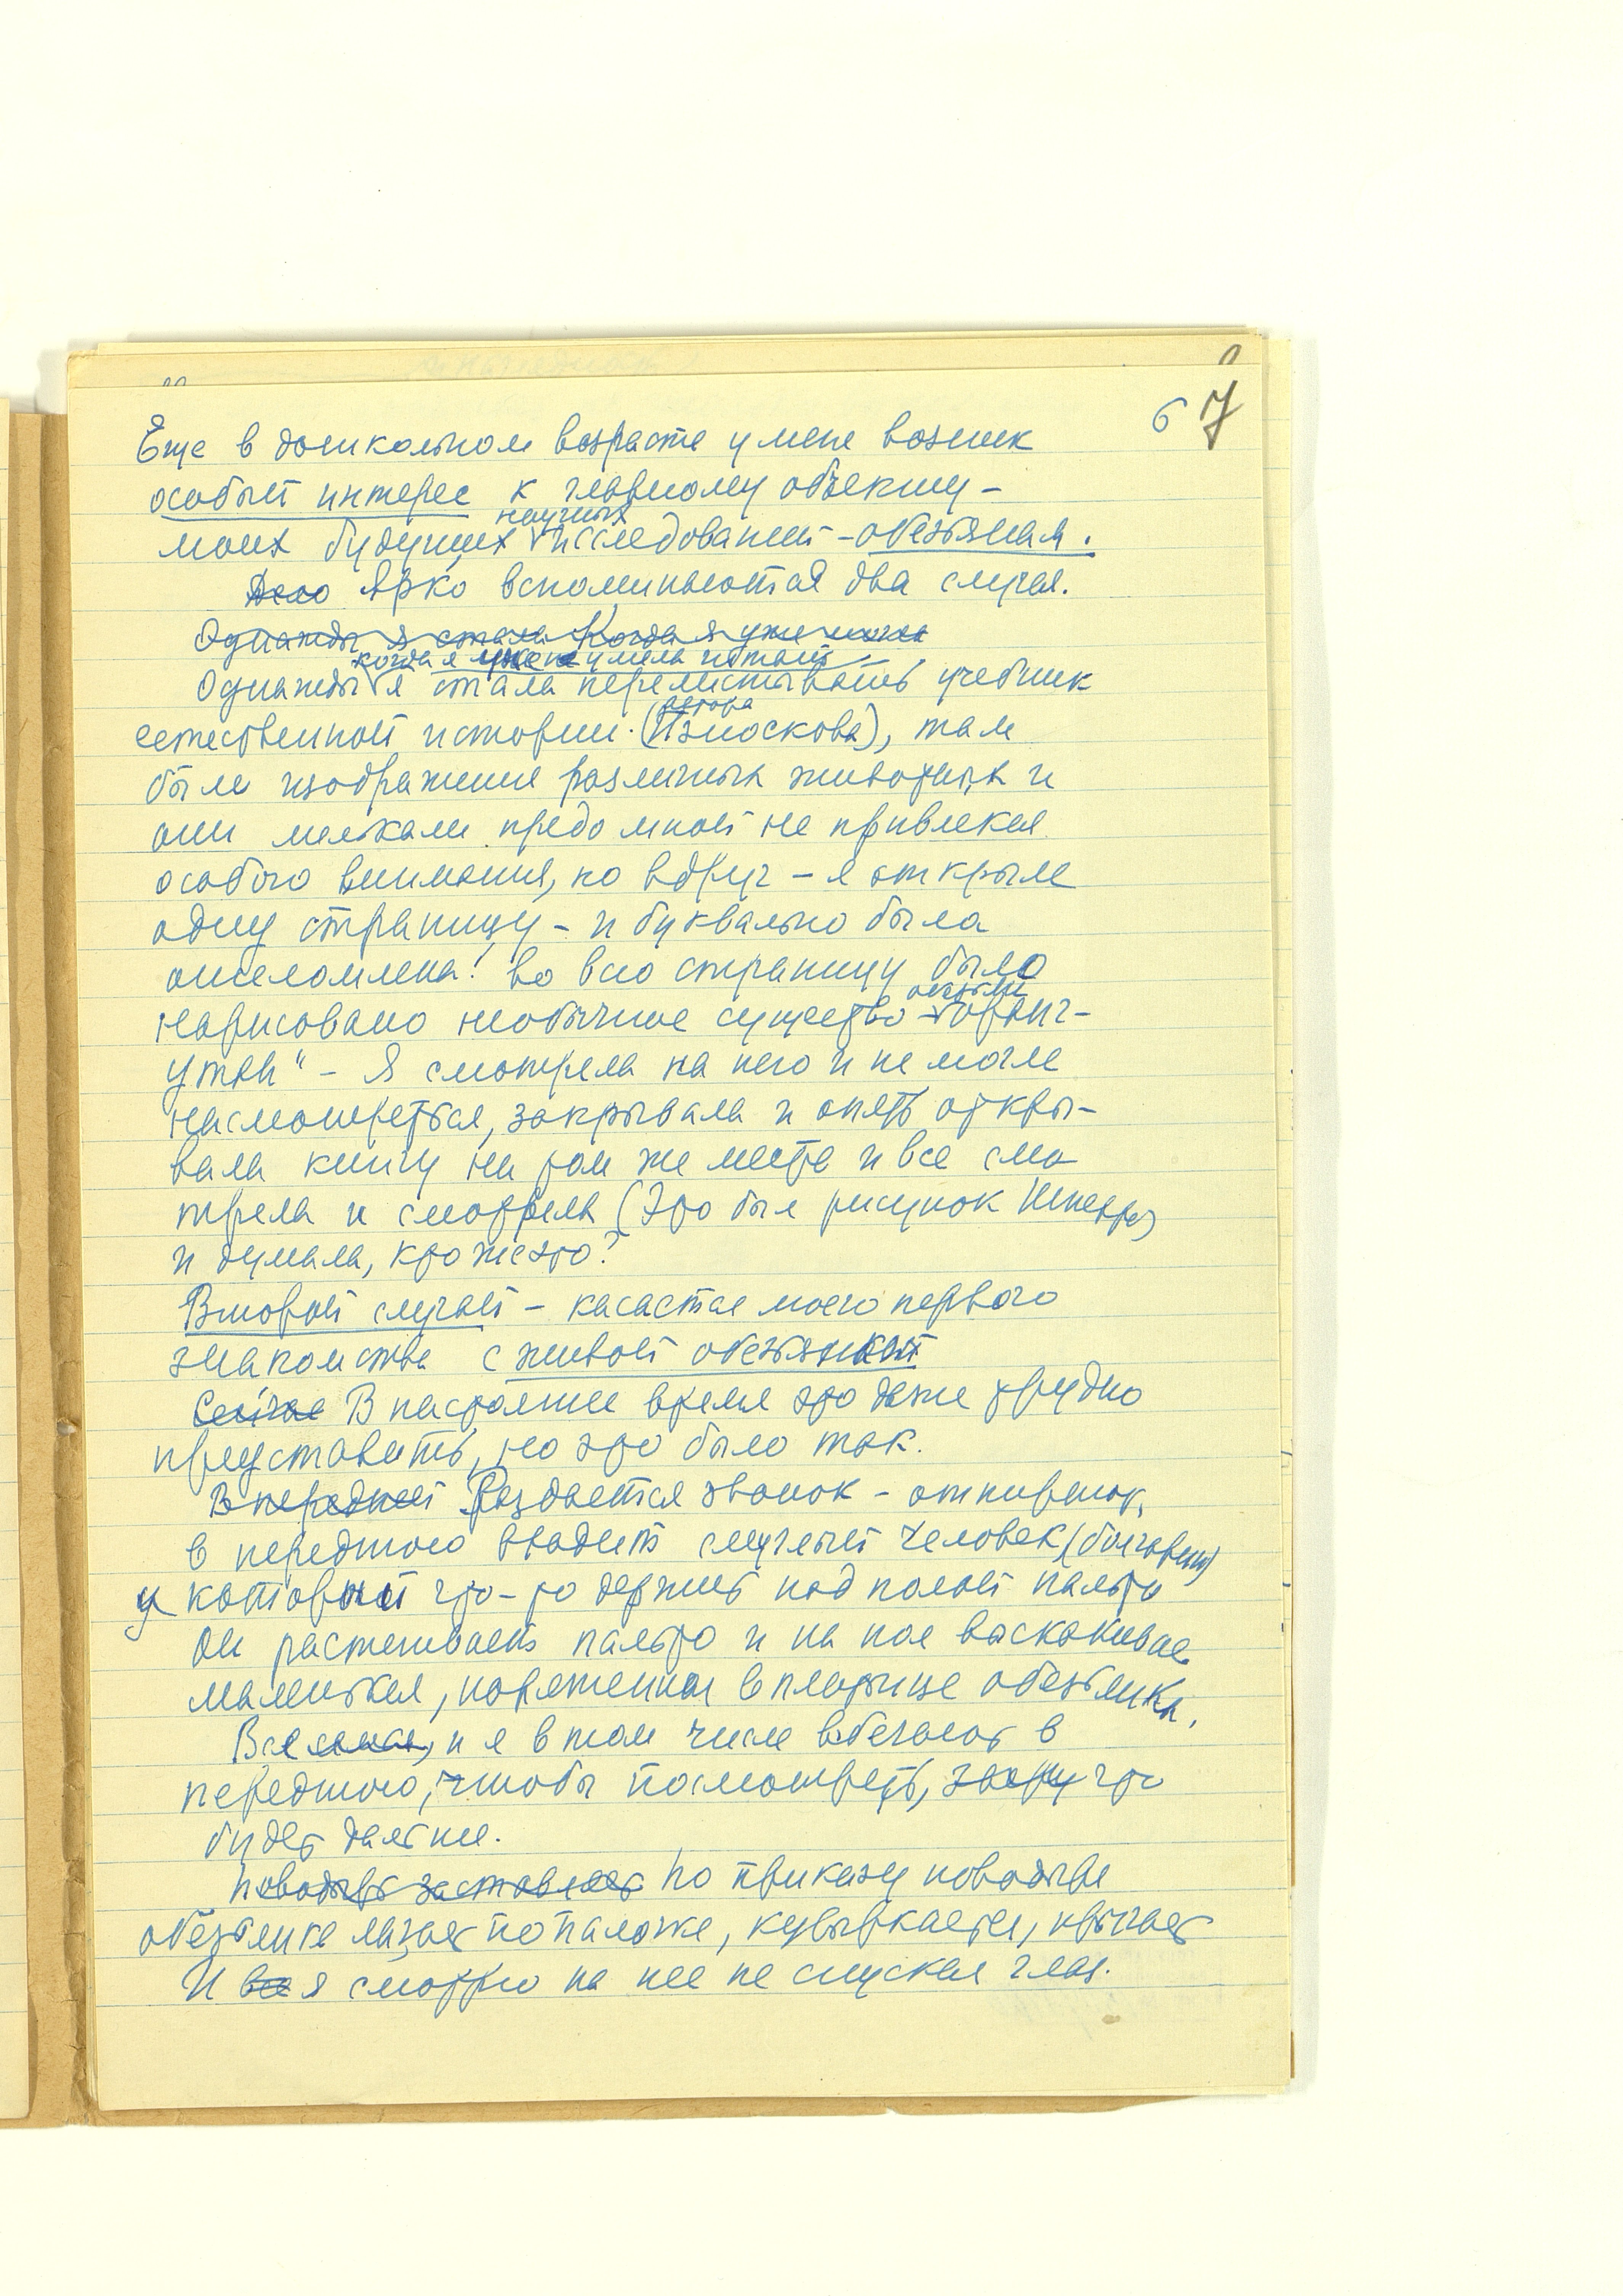 6 7
Еще в дошкольном возрасте у меня возник
особый интерес к главному объекту –
научных
моих будущих исследований – обезьянам.
Ярко вспоминаются два случая.
Однажды я стала Когда я уже могла
когда я уже не умела читать
Однажды я стала перелистывать учебник
автора
естественной истории (Износкова), там
были изображения различных животных и
они мелькали предо мной не привлекая
особого внимания, но вдруг – я открыла
одну страницу – и буквально была
ошеломлена! Во всю страницу было
обезьяны
нарисовано необычное существо – "оранг-
утан" – Я смотрела на него и не могла
насмотреться, закрывала и опять откры-
вала книгу на том же месте и все смо
трела и смотрела (Это был рисунок Шпехта)
и думала, кто же это?
Второй случай – касается моего первого
знакомства с живой обезьянкой
Сейчас В настоящее время это даже трудно
представить, но это было так.
В передней Раздается звонок – отпирают,
в переднюю входит смуглый человек (болгарин)
у который что-то держит под полой пальто
Он распахивает пальто и на пол выскакивает
маленькая, наряженная в платьице обезьянка.
Все и я в том числе вбегают в
переднюю, чтобы посмотреть, что
будет дальше.
Поводырь заставляет По приказу поводыря
обезьянка лазает по палочке, кувыркается, прыгает
И все я смотрю на нее не спуская глаз.